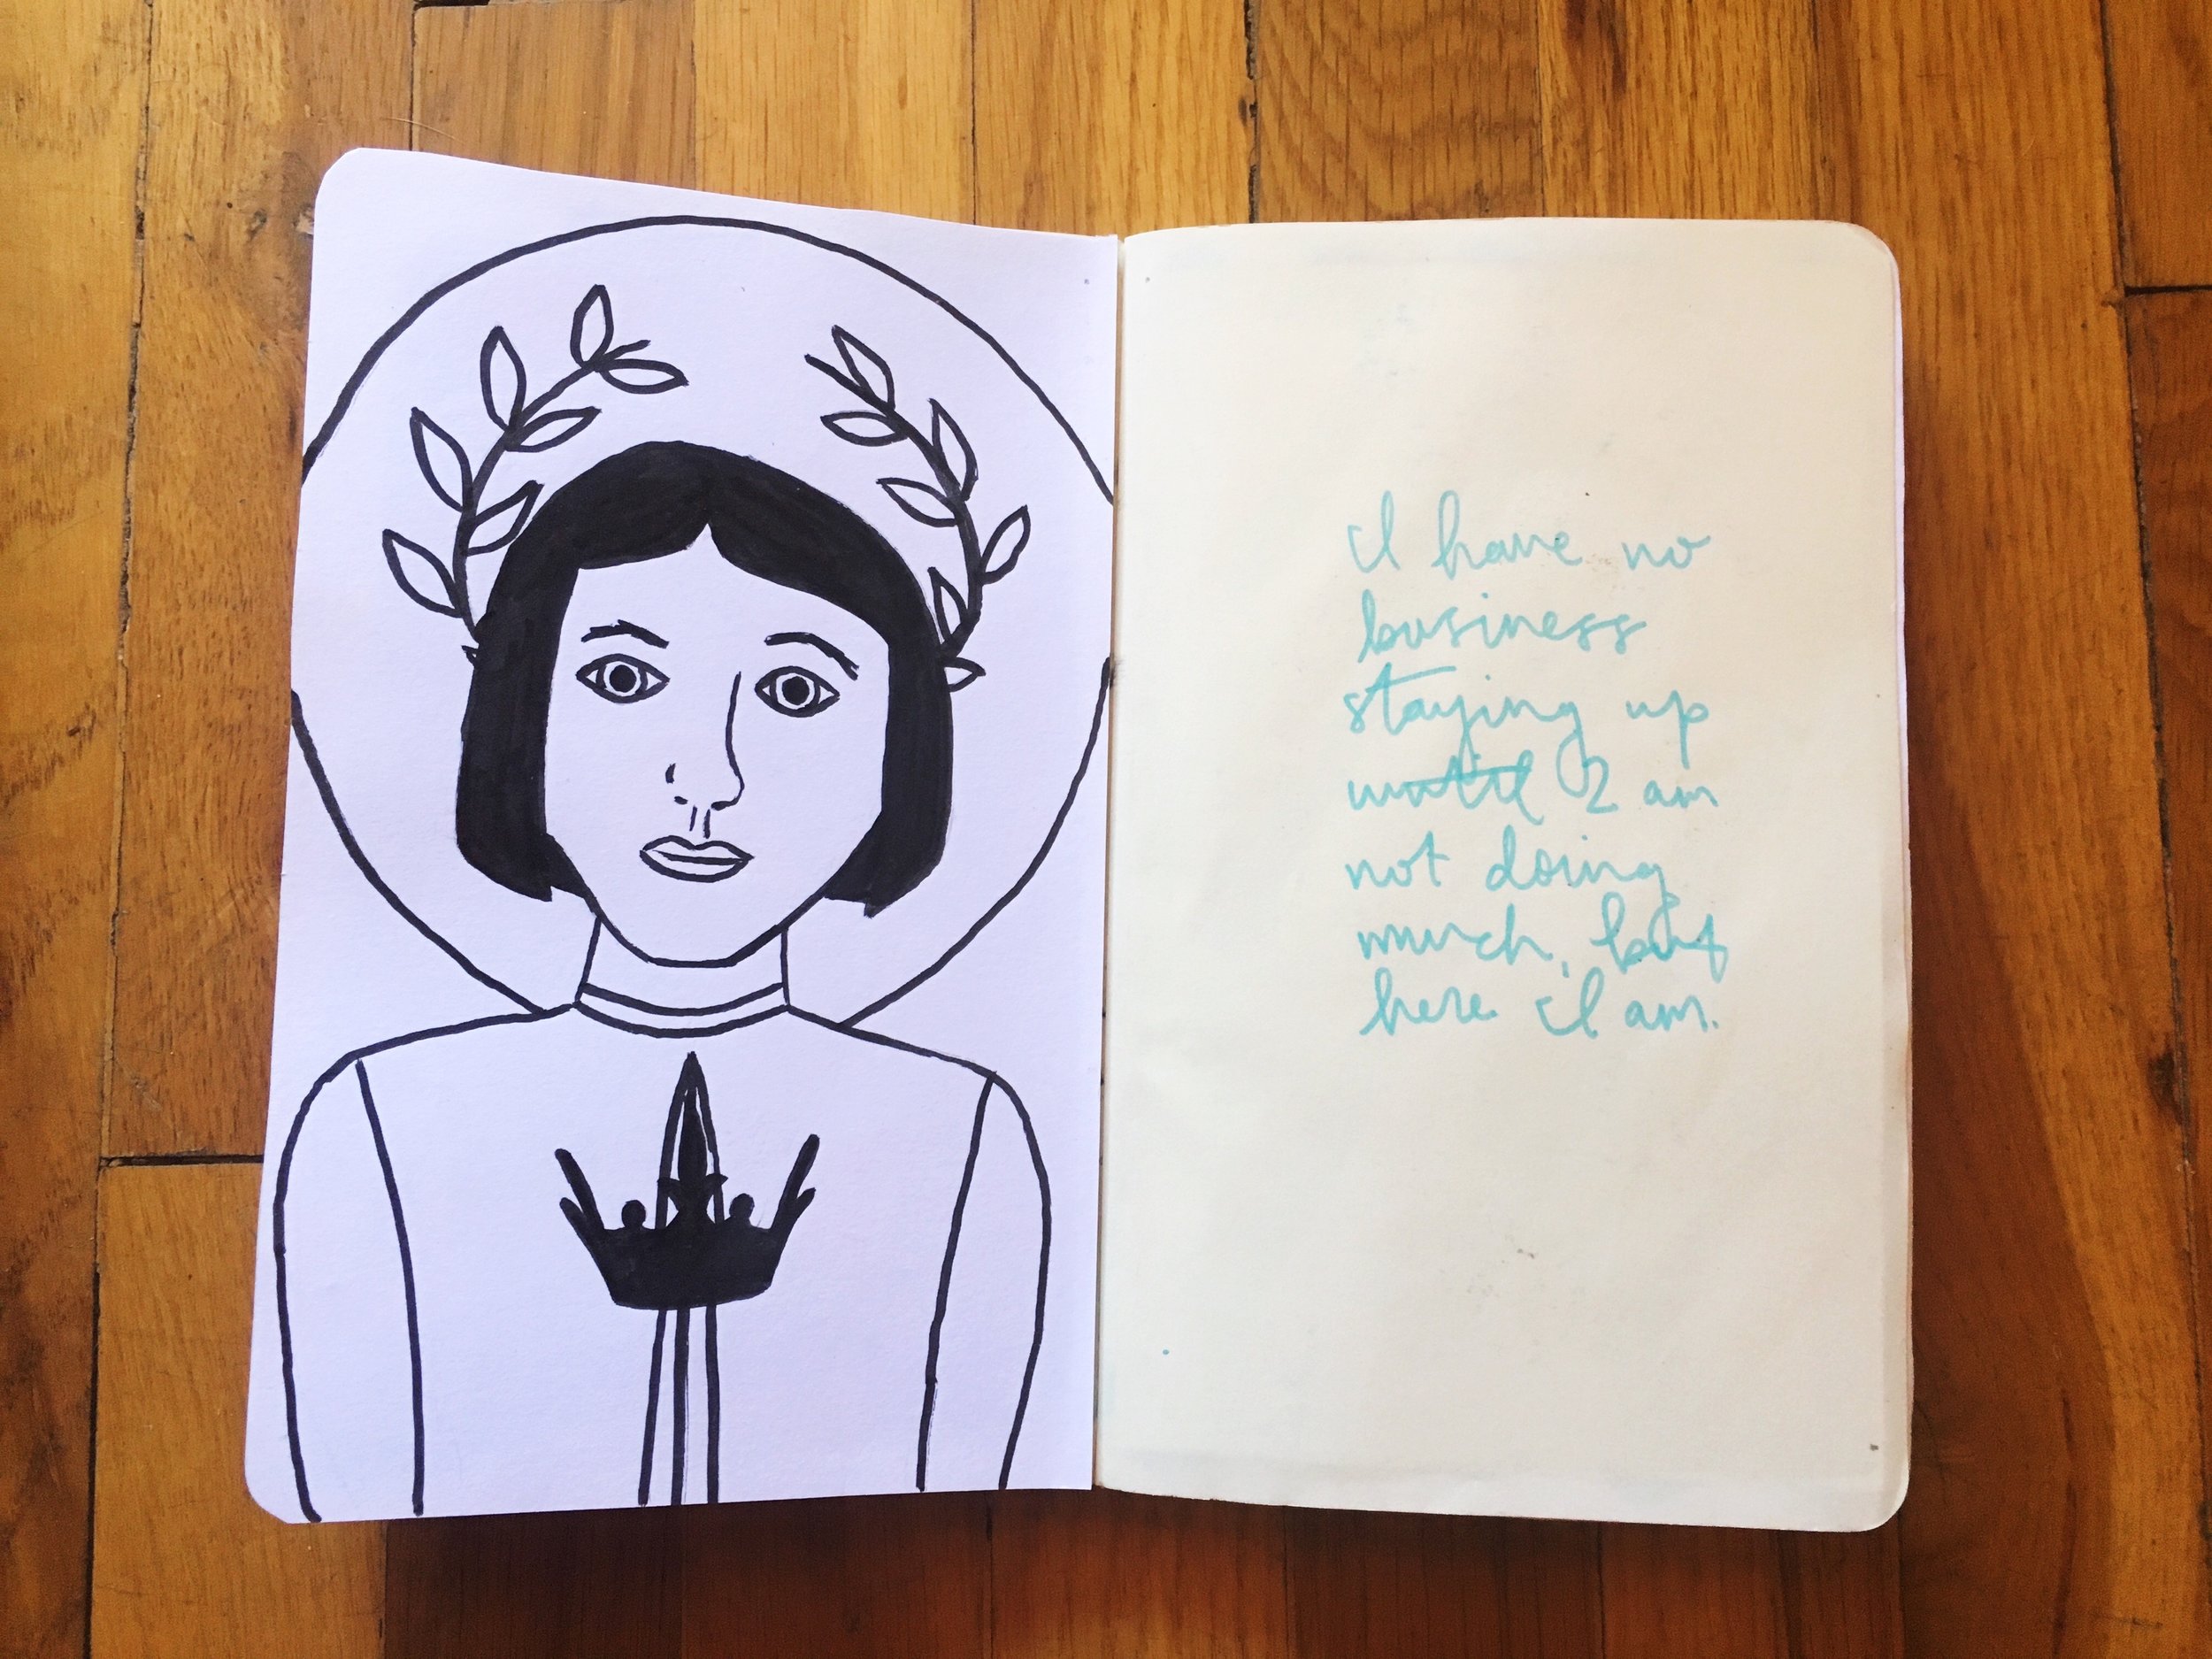 I have no
business
staying up
until 2 am
not doing
much, but
here I am.